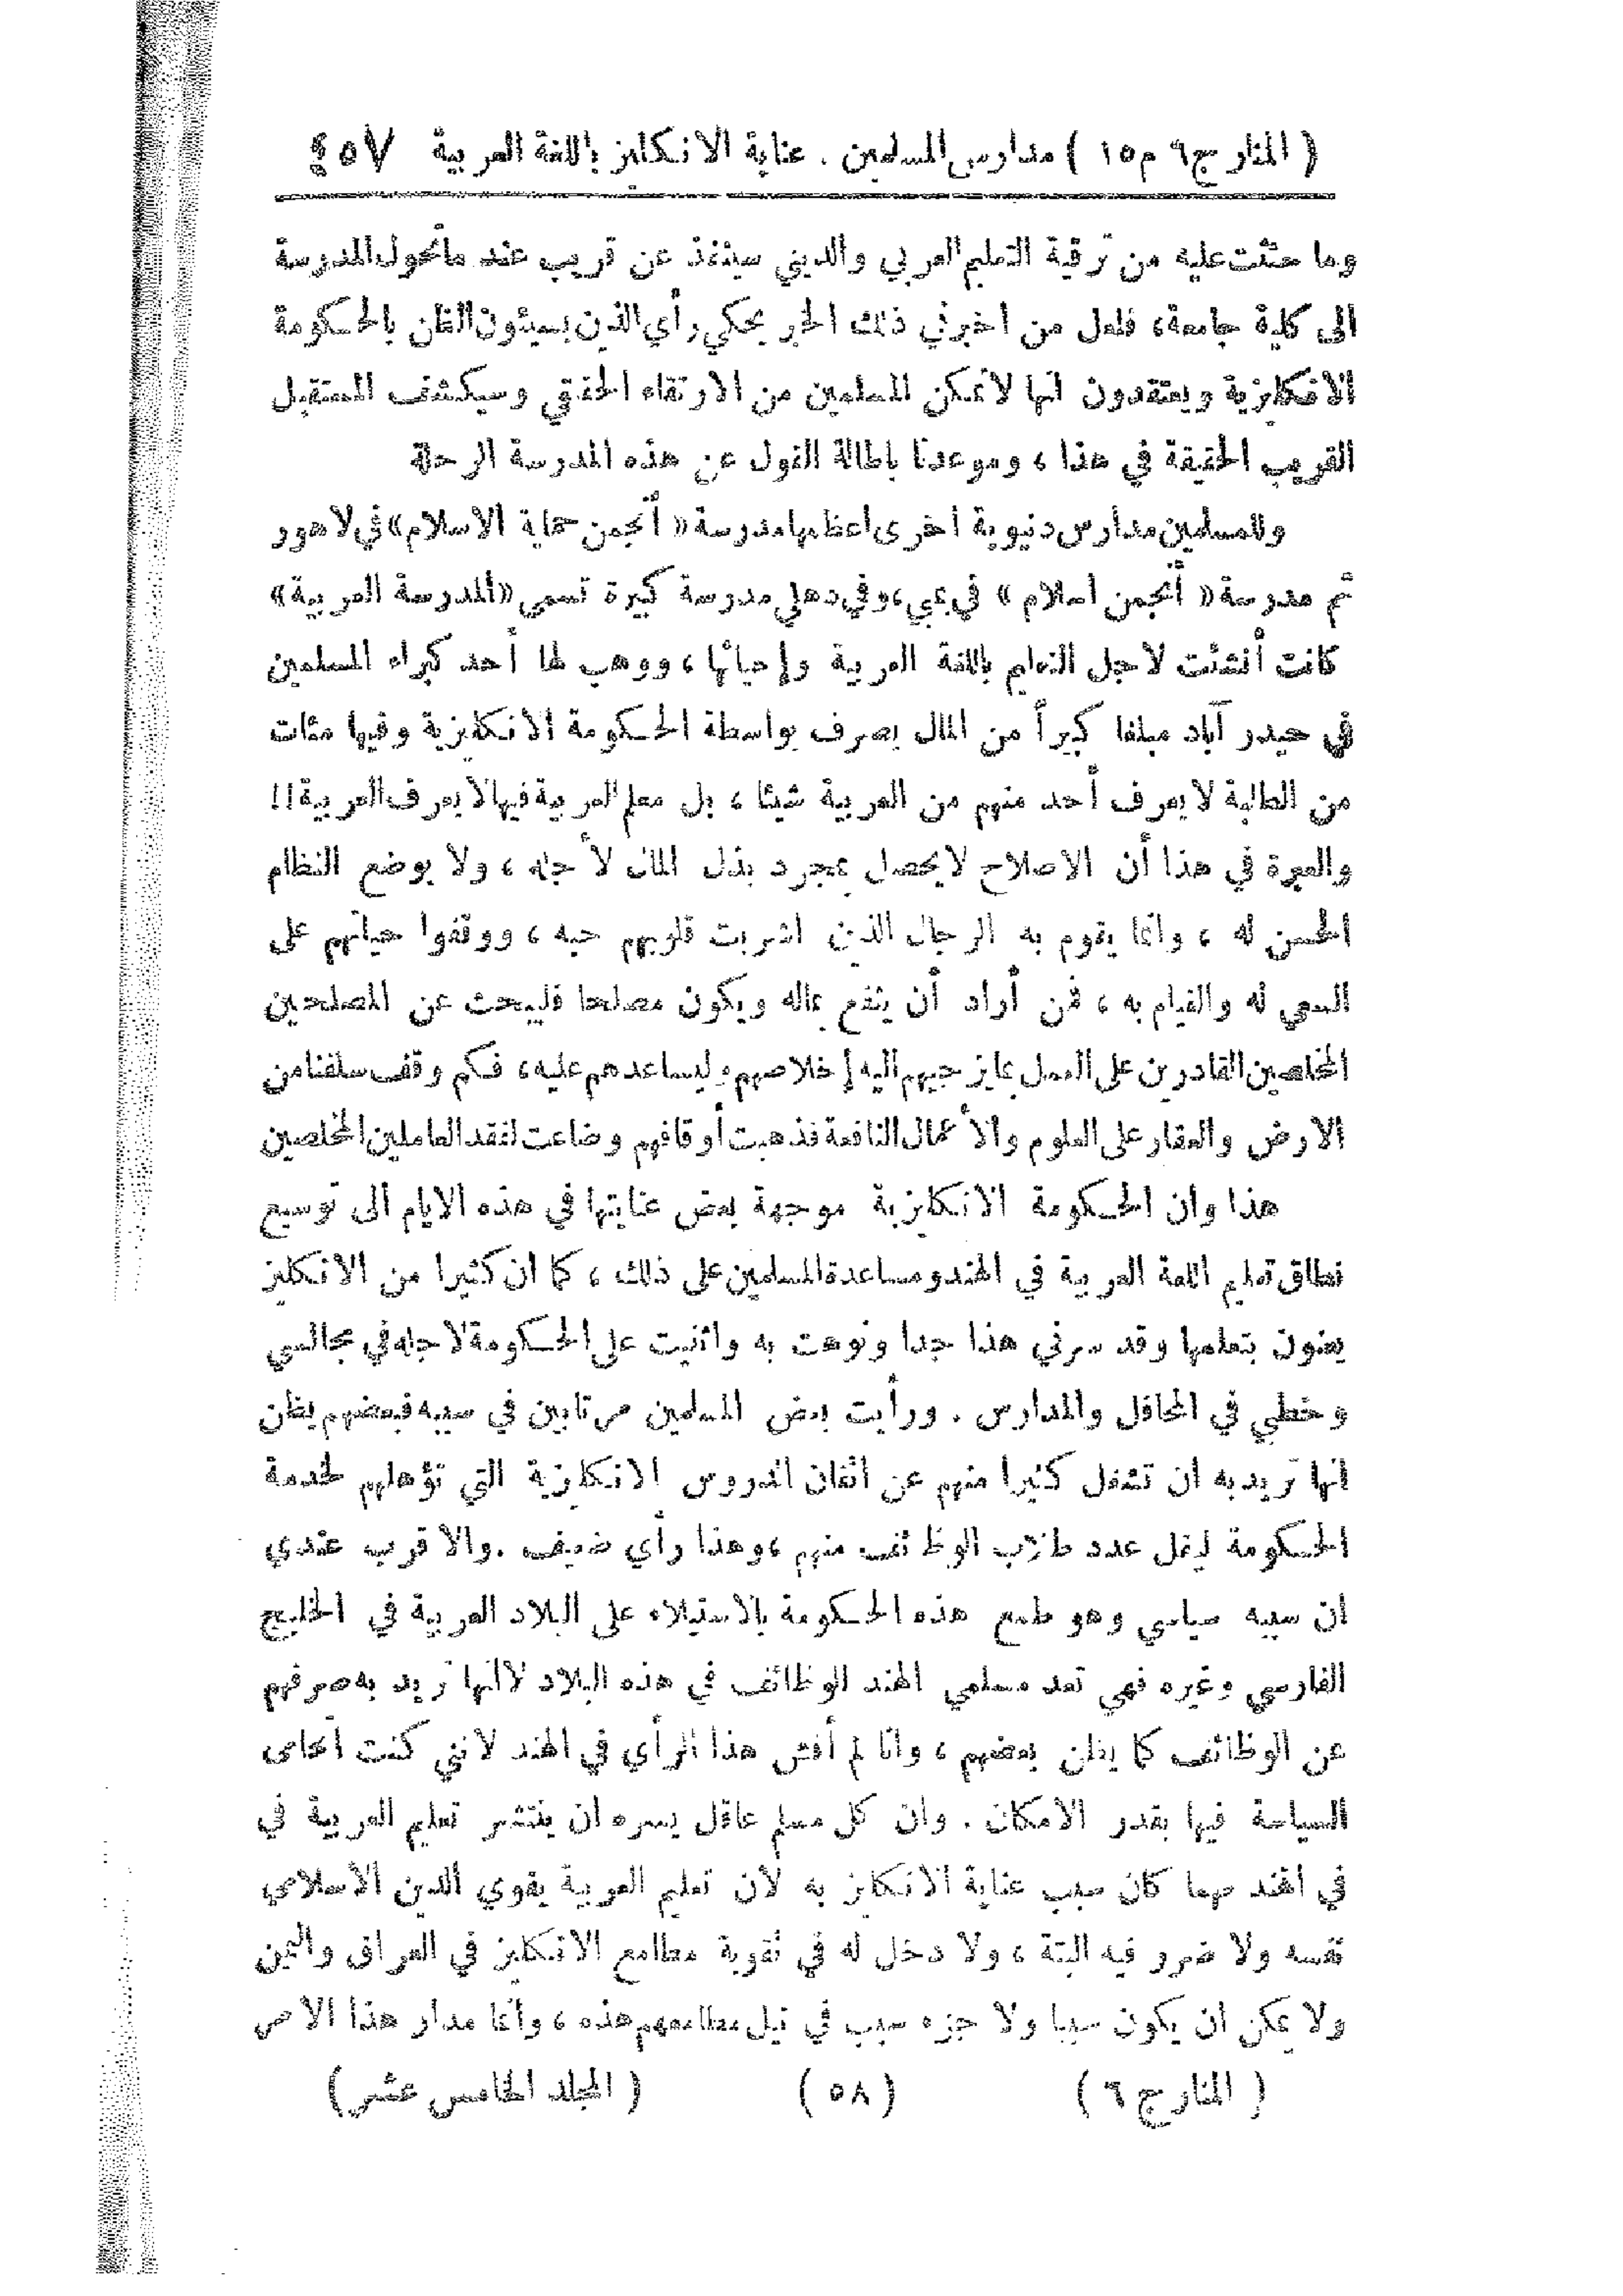 ( المنار ج٦ م١٥ ) مدارس المسلمين . عناية الانكليز باللغة العربية ٤٥٧
وما حثثت عليه من ترقية التعليم العربي والديني سينفذ عن قريب عند ما تحول المدرسة
الى كلية جامعة، فلعل من اخبرني ذلك الخبر يحكي رأي الذين يسيئون الظن بالحكومة
الانكليزية ويعتقدون انها لا تمكن المسلمين من الارتقاء الحقيقي وسيكشف المستقبل
القريب الحقيقة في هذا ، وموعدنا باطالة القول عن هذه المدرسة الرحلة
وللمسلمين مدارس دنيوية اخرى اعظمها مدرسة « أنجمن حماية الاسلام» في لاهور
ثم مدرسة « أنجمن اسلام » في بمبي ، وفي دهلي مدرسة كبيرة تسمى «المدرسة العربية»
كانت أنشئت لاجل التعليم باللغة العربية وإحيائها ، ووهب لها أحد كبراء المسلمين
في حيدر آباد مبلغا كبيراً من المال يصرف بواسطة الحكومة الانكليزية وفيها مئات
من الطلبة لا يعرف أحد منهم من العربية شيئا ، بل معلم العربية فيها لا يعرف العربية!!
والعبرة في هذا أن الاصلاح لا يحصل بمجرد بذل المال لأ جله ، ولا بوضع النظام
الحسن له ، وانما يقوم به الرجال الذين اشربت قلوبهم حبه ، ووقفوا حياتهم على
السعي له والقيام به ، فمن أراد أن ينفع بماله ويكون مصلحا فليبحث عن المصلحين
المخلصين القادرين على العمل بما يزجيهم اليه إخلاصهم وليساعدهم عليه ، فكم وقف سلفنا من
الارض والعقار على العلوم والأ عمال النافعة فذهبت أوقافهم وضاعت لفقد العاملين المخلصين
هذا وان الحكومة الانكليزية موجهة بعض عنايتها في هذه الايام الى توسيع
نطاق تعليم اللغة العربية في الهند ومساعدة المسلمين على ذلك ، كما ان كثيرا من الانكليز
يعنون بتعلمها وقد سرني هذا جدا ونوهت به واثنيت على الحكومة لاجله في مجالسي
وخطبي في المحافل والمدارس . ورأيت بعض المسلمين مرتابين في سببه فبعضهم يظن
انها تريد به ان تشغل كثيرا منهم عن اتقان الدروس الانكليزية التي تؤهلهم لخدمة
الحكومة ليقل عدد طلاب الوظائف منهم ، وهذا رأي ضعيف . والاقرب عندي
ان سببه سياسي وهو طمع هذه الحكومة بالاستيلاء على البلاد العربية في الخليج
الفارسي وغيره فهي تعد مسلمي الهند للوظائف في هذه البلاد لا انها تريد به صرفهم
عن الوظائف كما يظن بعضهم ، وانا لم أفش هذا الرأي في الهند لانني كنت أتحامى
السياسة فيها بقدر الامكان . وان كل مسلم عاقل يسره ان ينتشر تعليم العربية في
في الهند مهما كان سبب عناية الانكليز به لأن تعليم العربية يقوي الدين الاسلامي
نفسه ولا ضرر فيه البتة ، ولا دخل له في تقوية مطامع الانكليز في العراق واليمن
ولا يمكن ان يكون سببا ولا جزء سبب في نيل مطامعهم هذه ، وانما مدار هذا الامر
( المنار ج ٦ ) ( ٥٨ ) ( المجلد الخامس عشر )